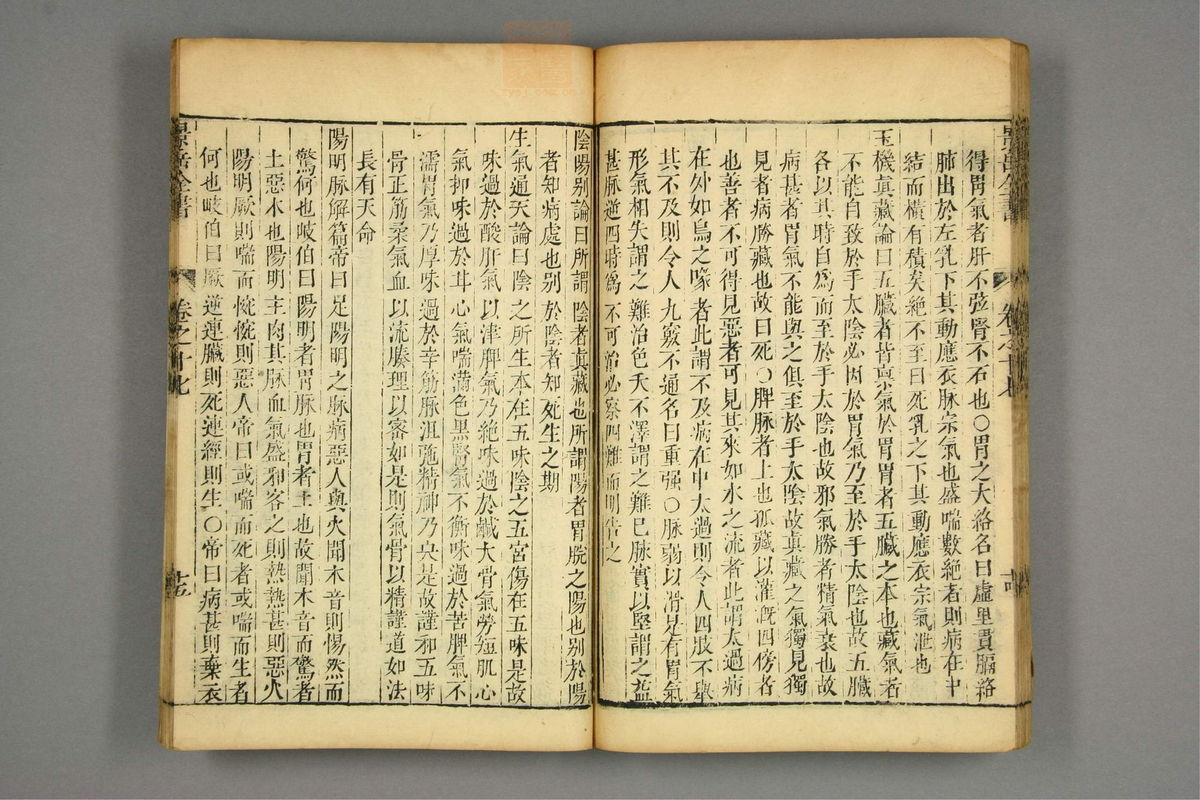 得胃氣者肝不弦腎不石也○胃之大絡名曰虛里貫膈絡
肺出於左乳下其動應衣脉宗氣也盛喘數絶者則病在中
結而橫有積矣絶不至曰死乳之下其動應衣宗氣泄也
玉機眞藏論曰五臟者皆稟氣於胃胃者五臟之本也藏氣者
不能自致於手太陰必因於胃氣乃至於手太陰也故五臟
各以其時自爲而至於手太陰也故邪氣勝者精氣衰也故
病甚者胃氣不能與之俱至於手太陰故眞藏之氣獨見獨
見者病勝藏也故曰死○脾脉者土也孤藏以灌漑四傍者
也善者不可得見惡者可見其來如水之流者此謂太過病
在外如鳥之喙者此謂不及病在中太過則令人四肢不舉
其不及則令人九竅不通名曰重强○脉弱以滑是有胃氣
形氣相失謂之難治色夭不澤謂之難已脉實以堅謂之益
甚脉逆四時爲不可治必察四難而明告之
陰陽别論曰所謂陰者眞藏也所謂陽者胃脘之陽也别於陽
者知病處也别於陰者知死生之期
生氣通天論曰陰之所生本在五味陰之五宮傷在五味是故
味過於酸肝氣以津脾氣乃絶味過於鹹大骨氣勞短肌心
氣抑味過於甘心氣喘滿色黑腎氣不衡味過於苦脾氣不
濡胃氣乃厚味過於辛筋脉沮弛精神乃央是故謹和五味
骨正筋柔氣血以流腠理以密如是則氣骨以精謹道如法
長有天命
陽明脉解篇帝曰足陽明之脉病惡人與火聞木音則惕然而
驚何也岐伯曰陽明者胃脉也胃者土也故聞木音而驚者
土惡木也陽明主肉其脉血氣盛邪客之則熱熱甚則惡火
陽明厥則喘而惋惋則惡人帝曰或喘而死者或喘而生者
何也岐伯曰厥逆連臟則死連經則生○帝曰病甚則棄衣
景岳全書
卷之十七